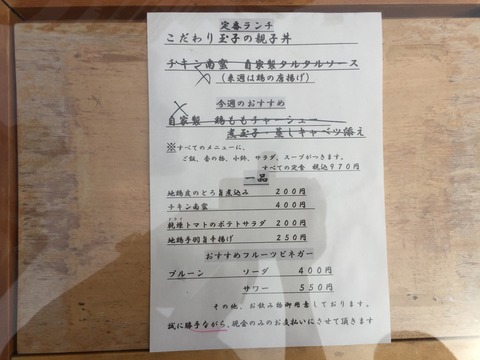 定番ランチ
こだわり玉子の親子丼
チキン南蛮 自家製タルタルソース
(来週は鶏の唐揚げ)
今週のおすすめ
自家製 鶏ももチャーシュー
煮玉子・蒸しキャベツ添え
※すべてのメニューに、
ご飯、香の物、小鉢、サラダ、スープがつきます。
すべての定食 税込970円
一品
地鶏皮のとろ旨煮込み 200円
チキン南蛮 400円
乾燥トマトのポテトサラダ 200円
地鶏手羽旨辛揚げ 250円
おすすめフルーツビネガー
プルーン ソーダ 400円
サワー 550円
その他、お飲み物御用意しております。
誠に勝手ながら、現金のみのお支払いにさせて頂きます